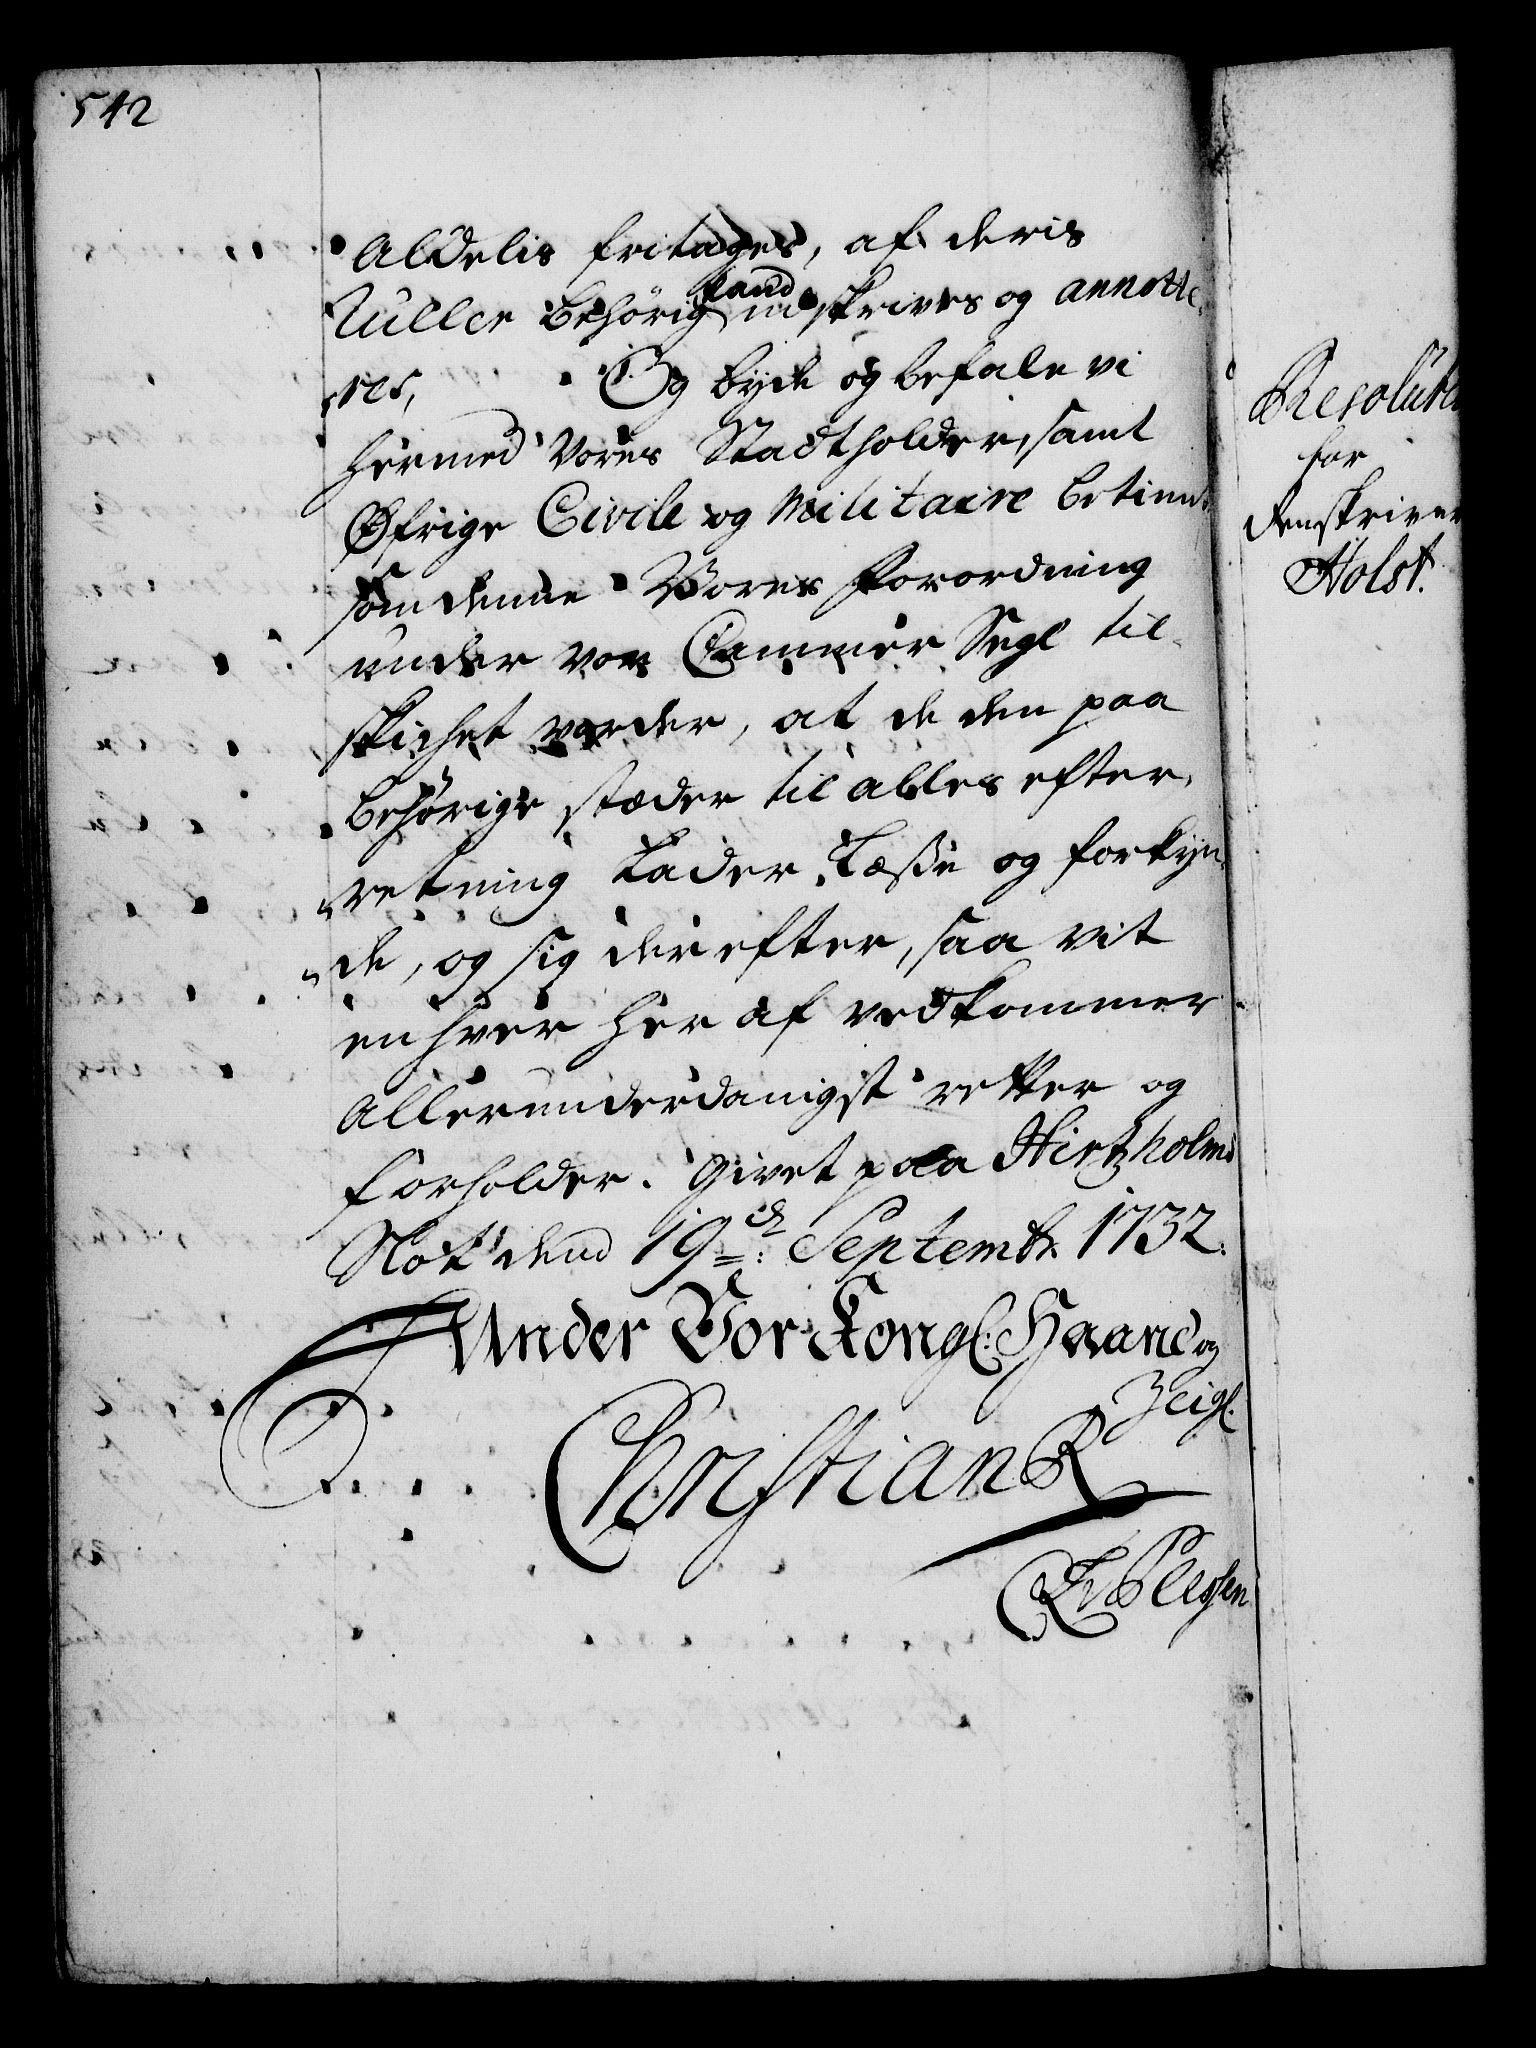 542
Aldelis fritages, af deris
Ruller behørig udskrives og annotte-
res, Og byde og befale vi
hermed Vores Stadtholder, samt
Øfrige Civile og Militaire betiente
som denne Vores Forordning
under vor Cammer Segl til-
skichet vorder, at de den paa
behørige stæder til alles efter-
retning Lader Læsse og forkyn-
de, og sig derefter, saa vit
enhver her af vedkommer
Allerunderdanigst retter og
forholder. Givet paa Hirtzholms
Slot dend 19de: Septembr. 1732.
Under Vor Kongl: Haand og
Zeigl.
Christian R
CAvPlessen
Resolution
for
Holst.